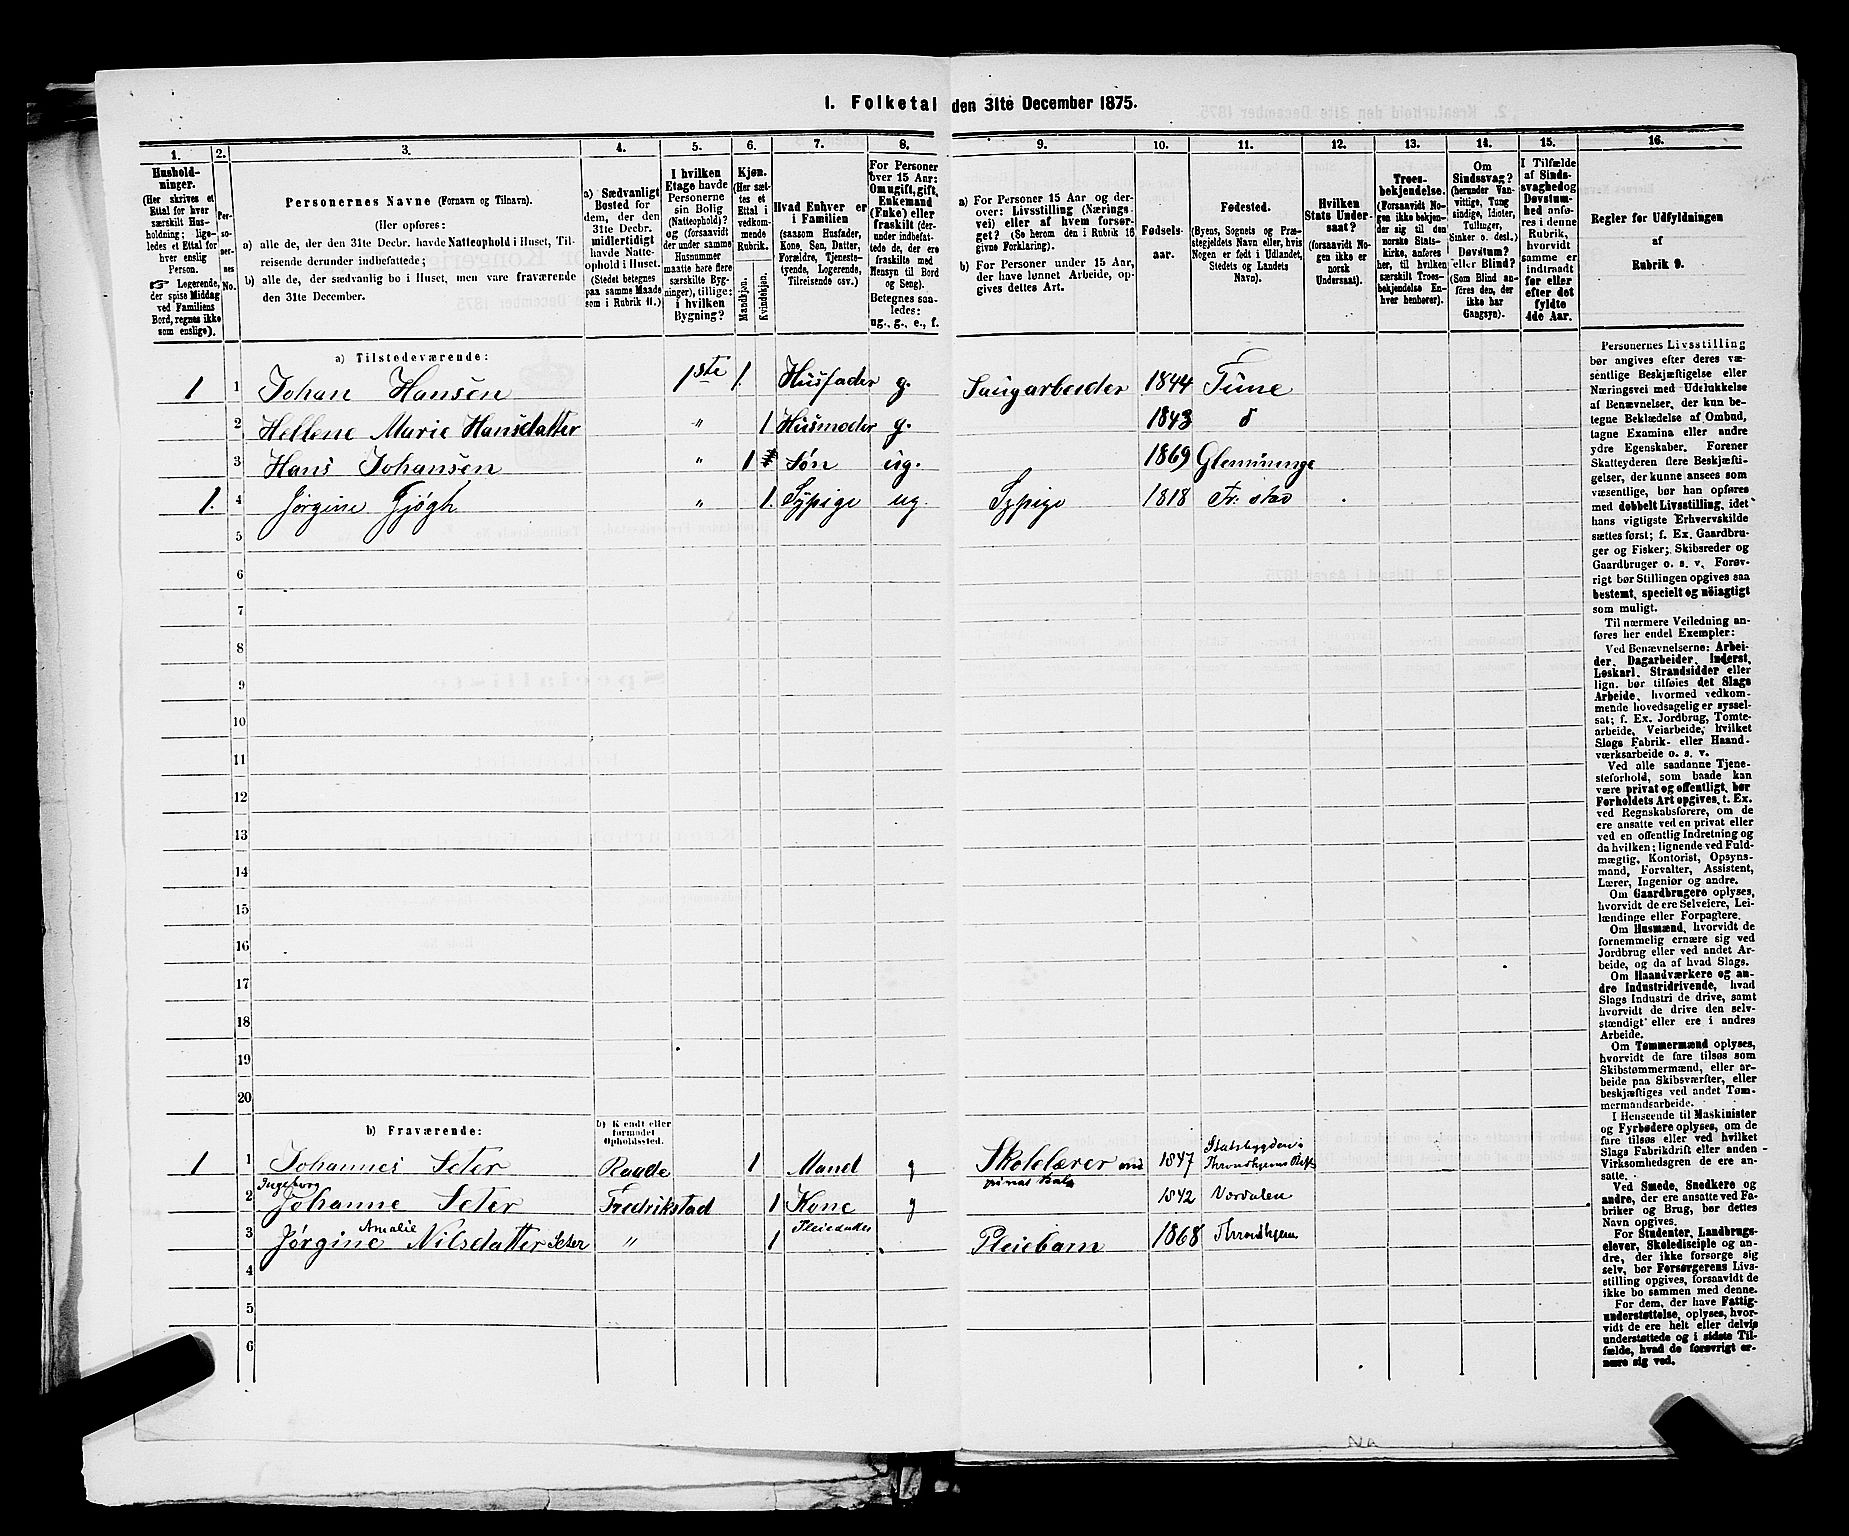 1. Folketal den 31te December 1875.
1.
2.
3.
4.
5.
6.
7.
8.
9.
10.
11.
12.
13.
14.
15.
16.
Husholdninger.
(Her skrives et
Ettal for hver
særskilt Husholdning;
ligeledes et Ettal for
hver enslig
Person.
☞ Logerende,
der spise Middag
ved Familiens
Bord, regnes ikke
som enslige).
Personernes No.
Personernes Navne (Fornavn og Tilnavn).
(Her opføres:
a) alle de, der den 31te Decbr. havde Natteophold i Huset, Tilreisende derunder indbefattede;
b) alle de, der sædvanlig bo i Huset, men vare fraværende
den 31te December.
a) Sædvanligt
Bosted for
dem, der den
31te Decbr.
midlertidigt
havde Natteophold i Huset.
(Stedet betegnes
paa samme Maade
som i Rubrik 11.)
I hvilken
Etage havde
Personerne
sin Bolig
(Natteophold)?
og (forsaavidt
der under samme
Husnummer
maatte høre flere
særskilte Bygninger), tillige:
i hvilken
Bygning?
Kjøn.
(Her sættes
et Ettal i
vedkommende
Rubrik.
Mandkjøn.
Kvindekjøn.
Hvad Enhver er
i Familien
(saasom Husfader,
Kone, Søn, Datter,
Forældre, Tjenestetyende, Logerende,
Tilreisende osv.)
For Personer
over 15 Aar:
Om ugift, gift,
Enkemand
(Enke) eller
fraskilt (derunder indbefattede de, der ere
fraskilte med
Hensyn til Bord
og Seng).
Betegnes saaledes:
ug., g., e., f.
a) For Personer 15 Aar og derover: Livsstilling (Næringsvei) eller af hvem forsørget? (Se herom den i Rubrik 16
givne Forklaring).
b) For Personer under 15 Aar,
der have lønnet Arbeide, opgives dettes Art.
Fødselsaar.
Fødested.
(Byens, Sognets og Præstegjeldets Navn eller, hvis
Nogen er født i Udlandet,
Stedets og Landets
Navn).
Hvilken
Stats Undersaat?
(forsaavidt Nogen ikke er
norsk
Undersaat).
Troesbekjendelse.
(Forsaavidt Nogen ikke bekjender sig til den
norske Statskirke, anføres
her, til hvilken
særskilt Troesbekjendelse Enhver henhører).
Om
Sindssvag?
(herunder Vanvittige, Tungsindige, Idioter,
Tullinger,
Sinker o. desl.)
Døvstum?
eller Blind?
(Som Blind anføres den, der
ikke har
Gangsyn).
I Tilfælde
af Sindssvaghed og
Døvstumhed anføres i denne
Rubrik,
hvorvidt
samme er
indtraadt
før eller
efter det
fyldte
4de Aar.
Regler for Udfyldningen
af
Rubrik 9.
a) Tilstedeværende:
1 1 Johan Hansen 1ste 1. Husfader g. Saugarbeider 1844 Tune
2 Hellene Marie Hansdatter " 1 Husmoder g. 1843 d
3 Hans Johansen " 1 Søn ug. 1869 Glemminge
1. 4 Jørgine Gjøgh " 1. Sypige ug Sypige 1818 Fr: stad
5
6
7
8
9
10
11
12
13
14
15
16
17
18
19
20
b) Fraværende:
b) Kjendt eller
formodet
Opholdssted.
1 1 Johannes Seter Raade 1 Mand g Skolelærer ved privat 1847 Statsbygden
2 Ingeborg Johanne Seter Fredrikstad 1 Kone g 1842 Værdalen
3 Jørgine Amalie Nilsdatter Seter " 1 Pleiedatter Pleiebarn 1868 Throndhjem
4
5
6
Personernes Livsstilling
bør angives efter deres væsentlige Beskjæftigelse eller
Næringsvei med Udelukkelse
af Benævnelser, der kun betegne Beklædelse af Ombud,
tagne Examina eller andre
ydre Egenskaber. Forener
Skatteyderen flere Beskjæftigelser, der kunne ansees som
væsentlige, bør han opføres
med dobbelt Livsstilling, idet
hans vigtigste Erhvervskilde
sættes først; f. Ex. Gaardbruger og Fisker; Skibsreder og
Gaardbruger o. s. v. Forøvrigt bør Stillingen opgives saa
bestemt, specielt og nøiagtigt
som muligt.
Til nærmere Veiledning anføres her endel Exempler:
Ved Benævnelserne: Arbeider, Dagarbeider, Inderst,
Løskarl, Strandsidder eller
lign. bør tilføies det Slags
Arbeide, hvormed vedkommende hovedsagelig er sysselsat; f. Ex. Jordbrug, Tomtearbeide, Veiarbeide, hvilket
Slags Fabrik- eller Haandværksarbeide o. s. v.
Ved alle saadanne Tjenesteforhold, som baade kan
være privat og offentligt, bør
Forholdets Art opgives, t. Ex.
ved Regnskabsførere, om de
ere ansatte ved en privat eller
ved en offentlig Indretning og
da hvilken; lignende ved Fuldmægtig, Kontorist, Opsynsmand, Forvalter, Assistent,
Lærer, Ingeniør og andre.
Om Gaardbrugere oplyses,
hvorvidt de ere Selveiere, Leilændinge eller Forpagtere.
Om Husmænd, hvorvidt de
fornemmelig ernære sig ved
Jordbrug eller ved andet Arbeide, og da af hvad Slags.
Om Haandværkere og andre Industridrivende, hvad
Slags Industri de drive, samt
hvorvidt de drive den selvstændigt eller ere i andres
Arbeide.
Om Tømmermænd oplyses,
hvorvidt de fare tilsøs som
Skibstømmermænd, eller arbeide paa Skibsværfter, eller
beskjæftiges ved andet Tømmermandsarbeide.
I Henseende til Maskinister
og Fyrbødere oplyses, om de
fare tilsøs eller ved hvilket
Slags Fabrikdrift eller anden
Virksomhedsgren de ere ansatte.
Ved Smede, Snedkere og
andre, der ere ansatte ved Fabriker og Brug, bør dettes
Navn opgives.
For Studenter, Landbrugselever, Skoledisciple og andre, der ikke forsørge sig
selv, bør Forsørgerens Livsstilling opgives, forsaavidt de
ikke bo sammen med denne.
For dem, der have Fattigunderstøttelse, oplyses, hvorvidt de ere helt eller delvis
understøttede og i sidste Tilfælde, hvad de forøvrigt ernære sig ved.